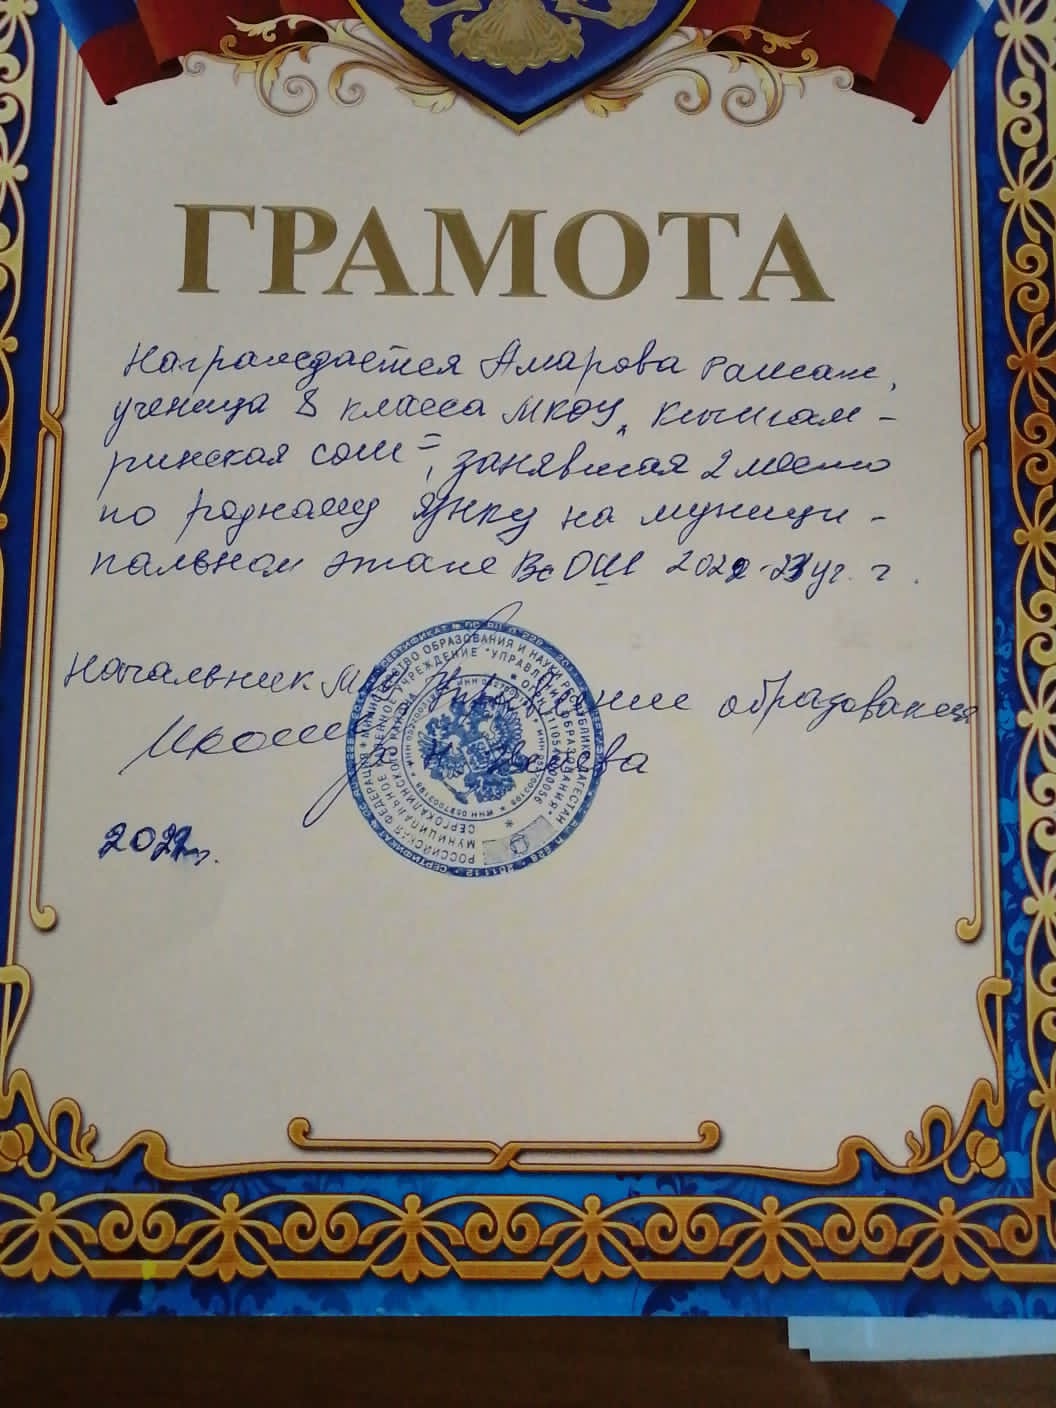 ГРАМОТА
Награждается Амарова
ученица 8 класса МКОУ „Кичигам-
ринская сош", занявшая 2 место
по родному языку на муници-
пальном этапе ВсОШ 2022-23 уг. г.
Начальник МКУ Управление образования
2022г.
РОССИЙСКАЯ ФЕДЕРАЦИЯ * МИНИСТЕРСТВО ОБРАЗОВАНИЯ И НАУКИ РЕСПУБЛИКИ ДАГЕСТАН
МУНИЦИПАЛЬНОЕ КАЗЕННОЕ УЧРЕЖДЕНИЕ "УПРАВЛЕНИЕ ОБРАЗОВАНИЯ"
СЕРГОКАЛИНСКОГО РАЙОНА